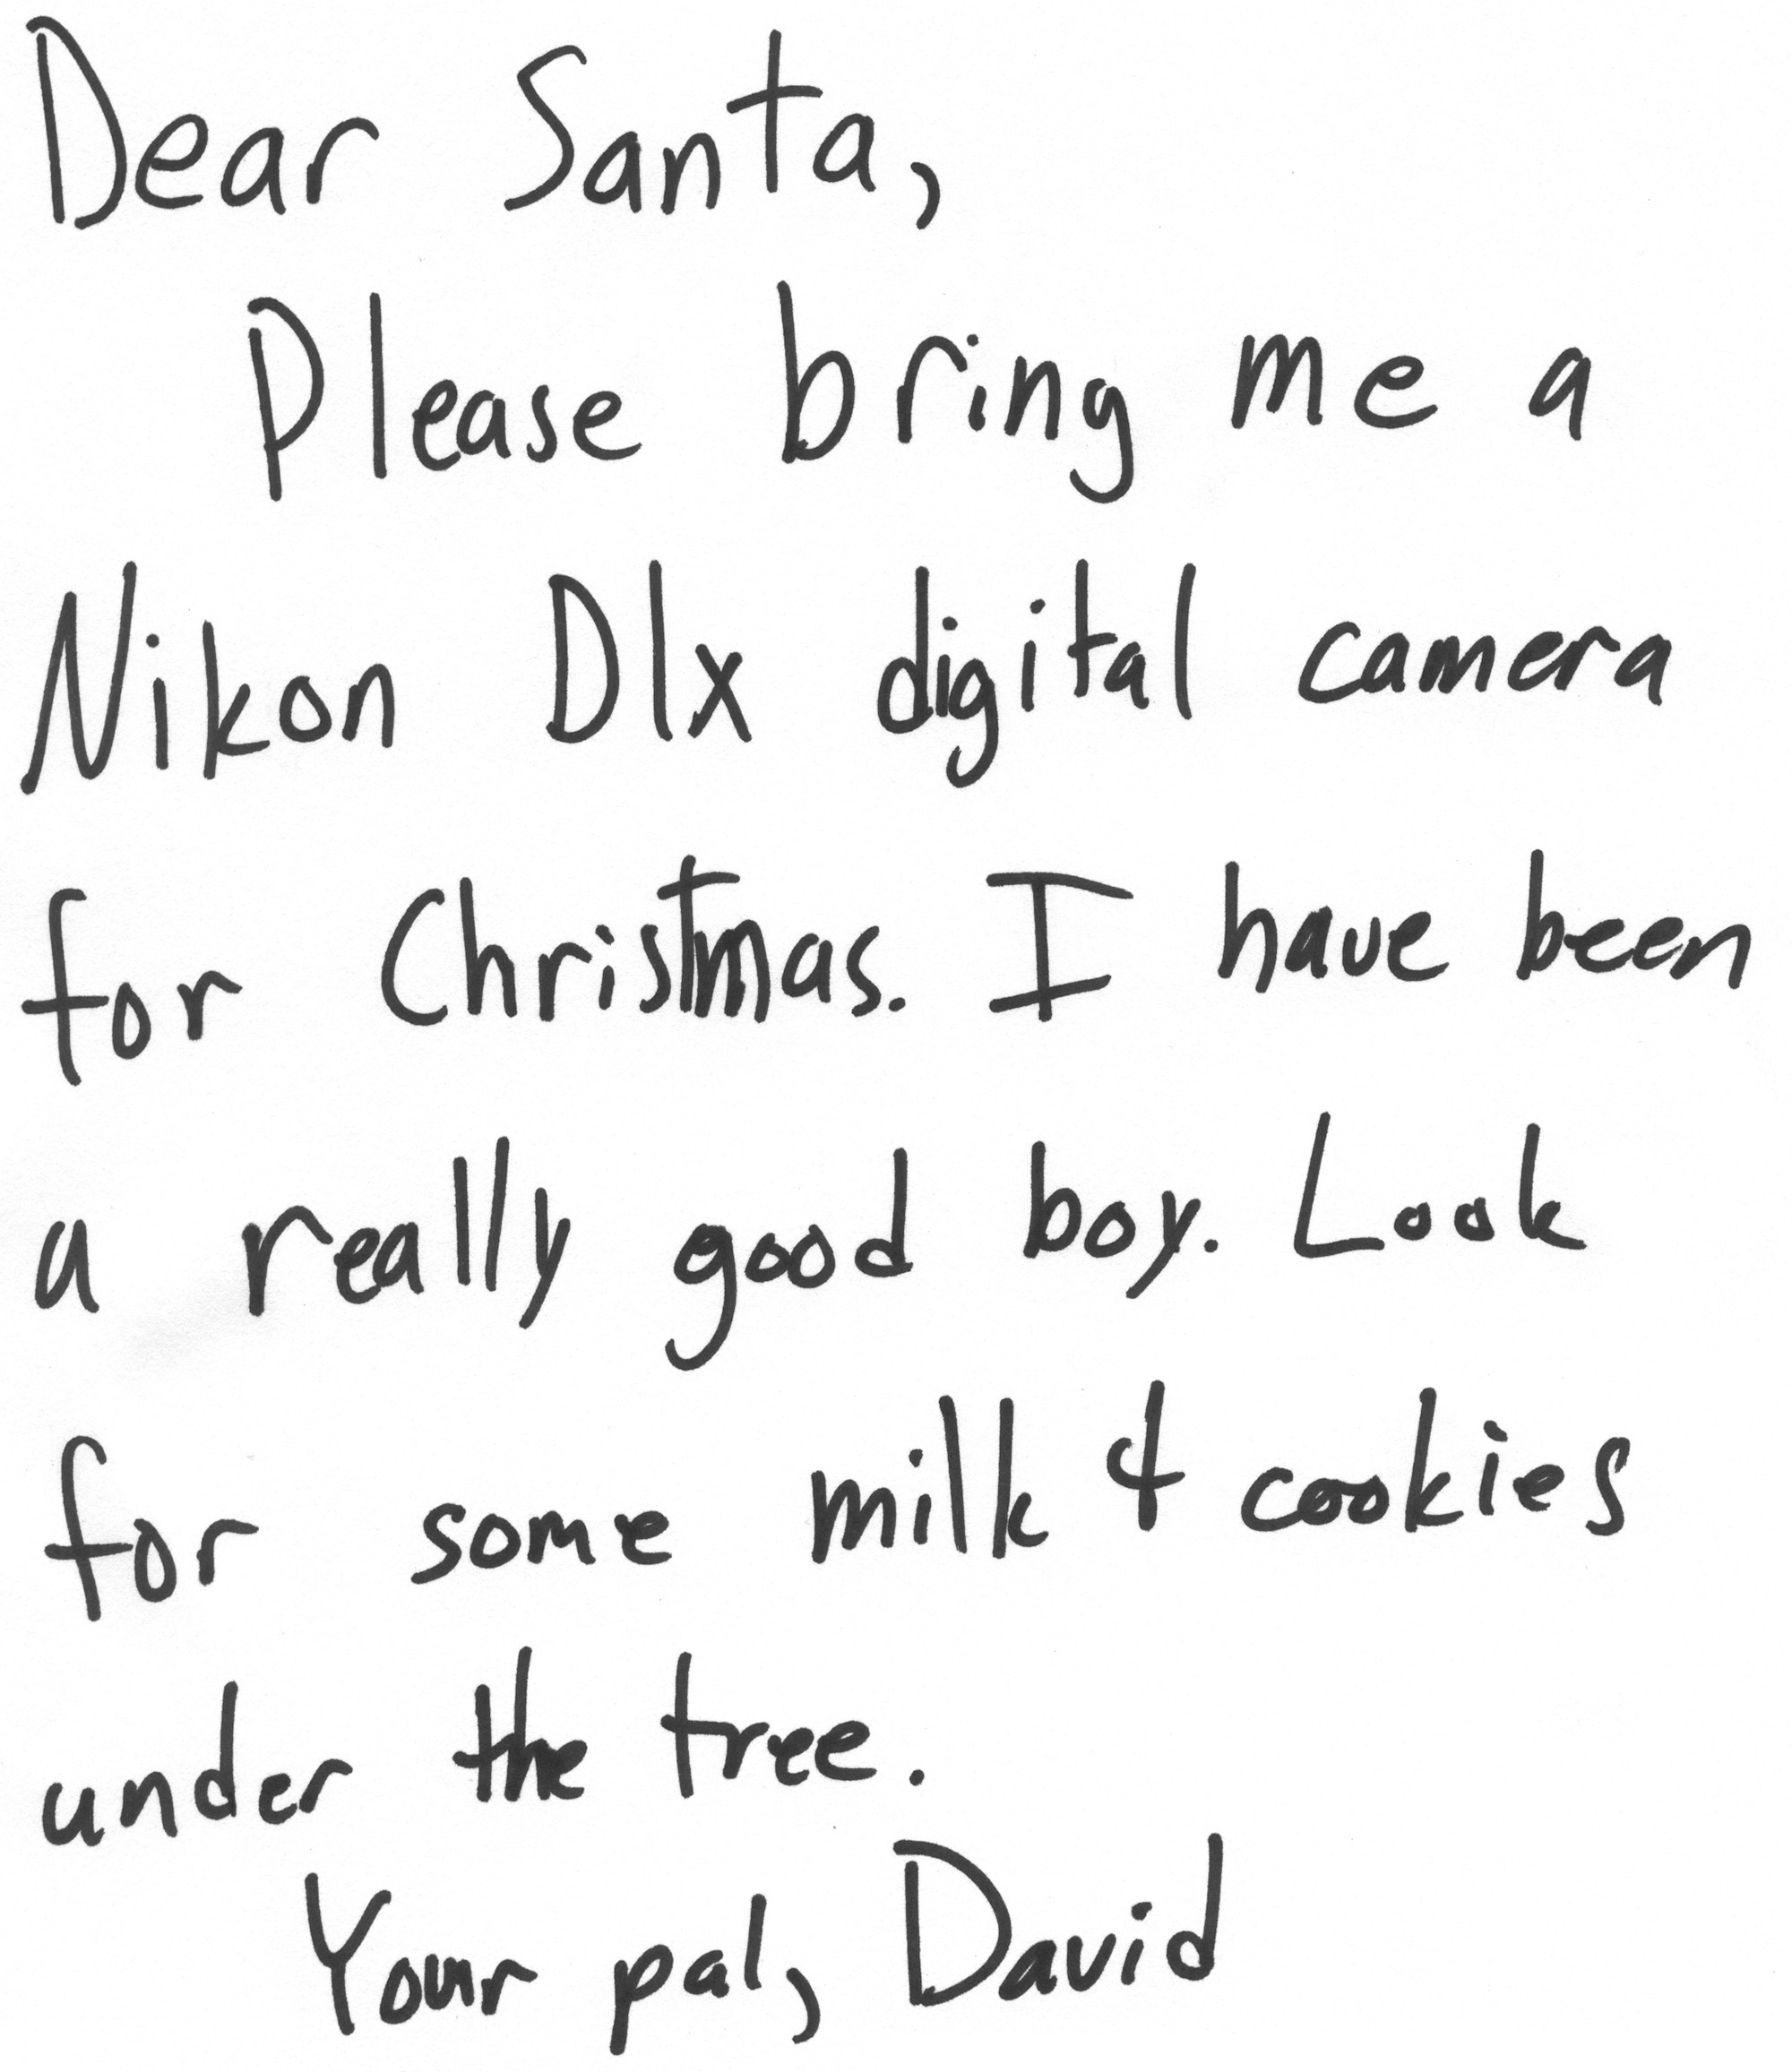 Dear Santa,
Please bring me a
Nikon D1x digital camera
for Christmas. I have been
a really good boy. Look
for some milk & cookies
under the tree.
Your pal, David